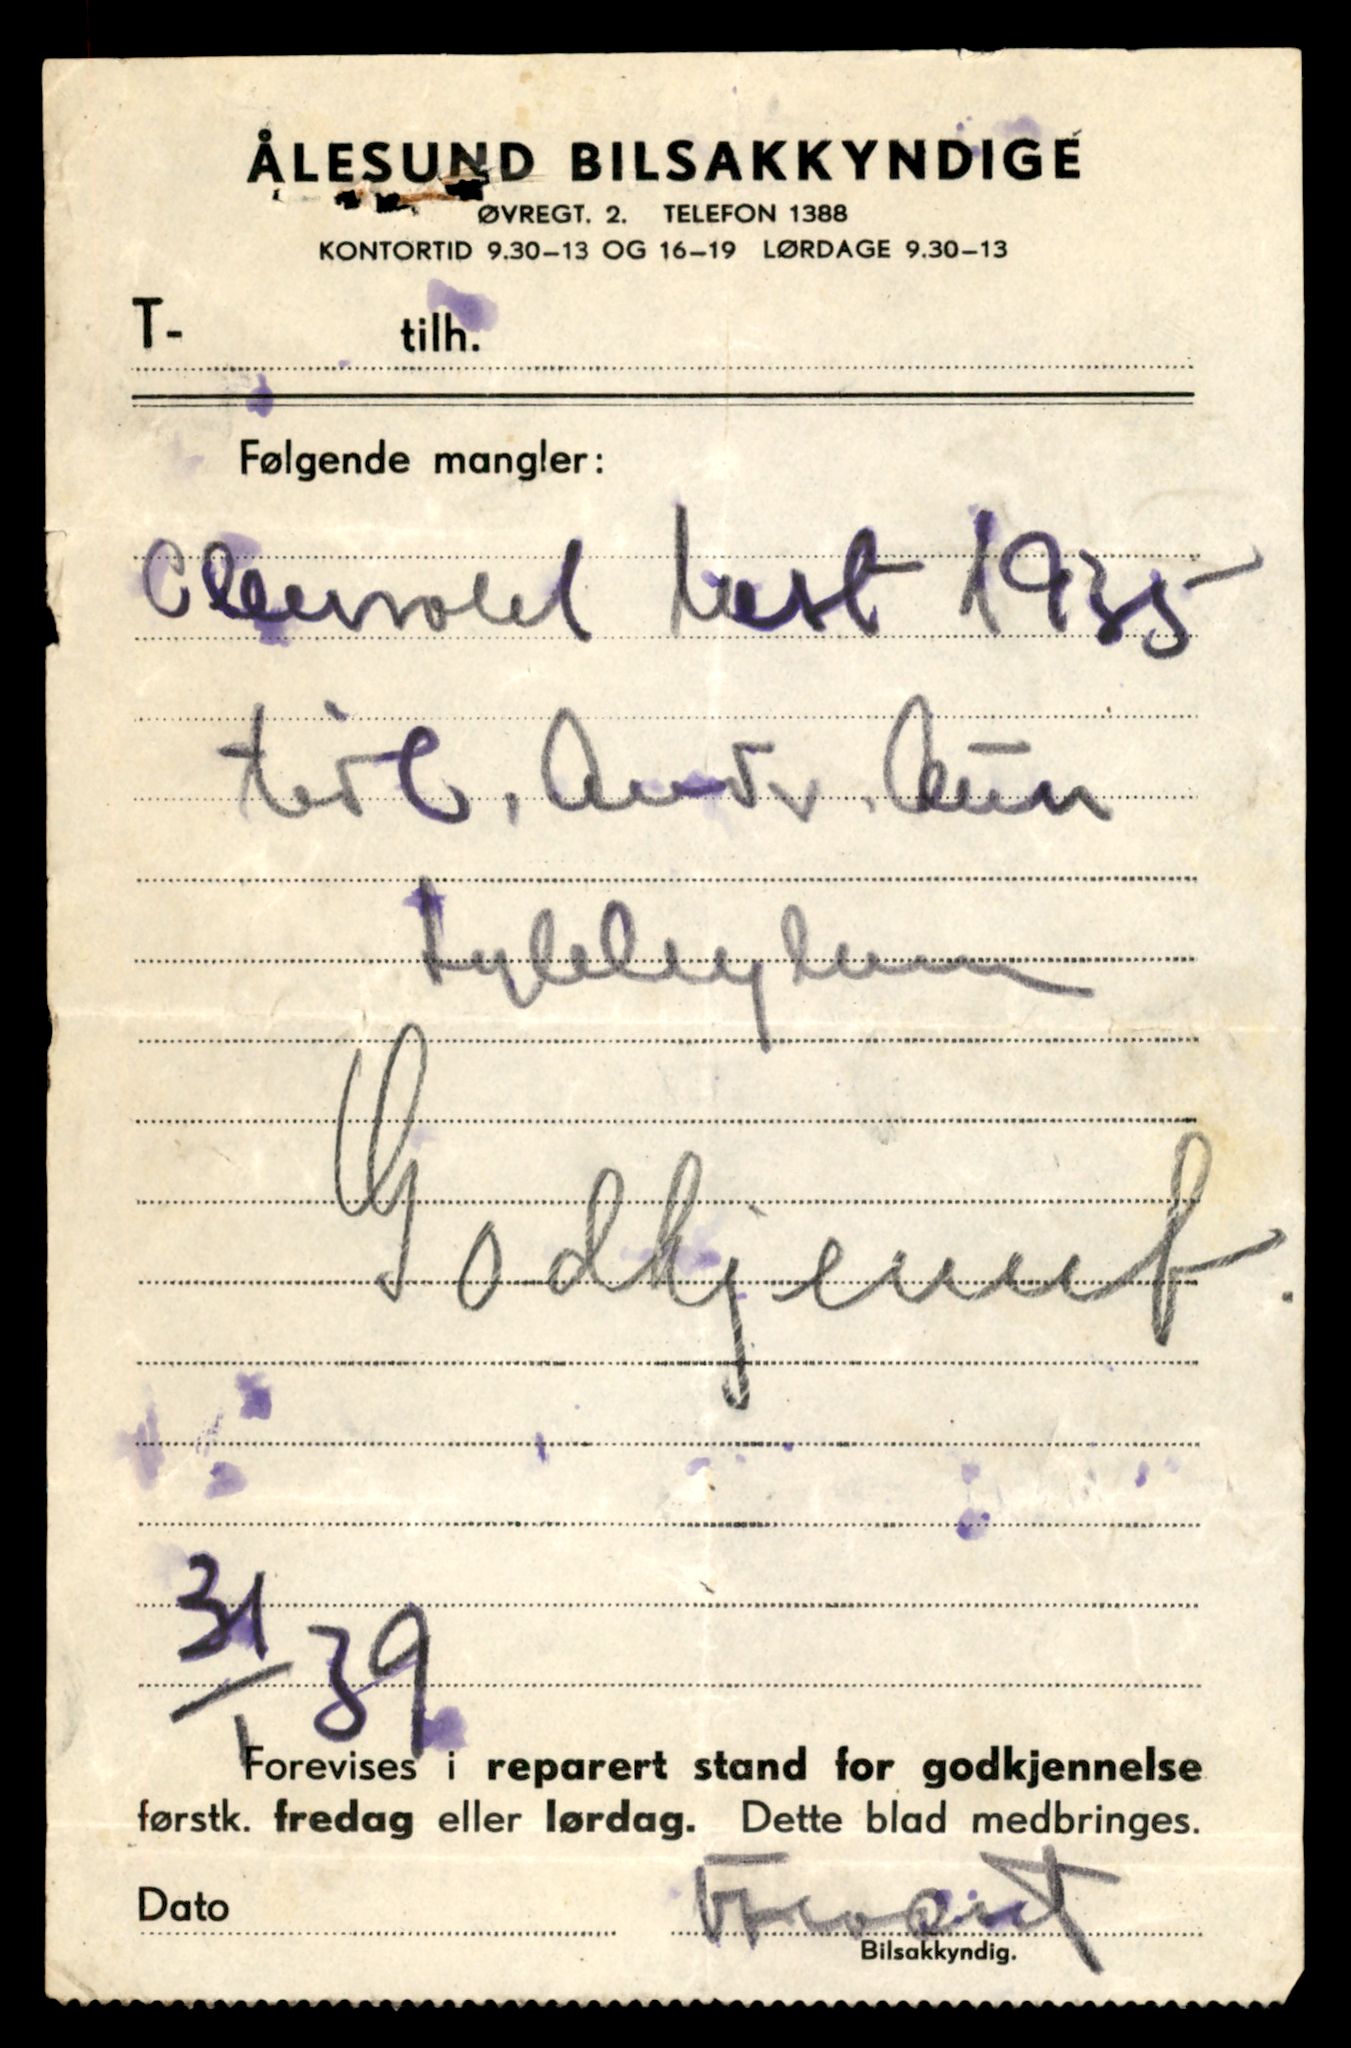 ÅLESUND BILSAKKYNDIGE
ØVREGT. 2. TELEFON 1388
KONTORTID 9.30–13 OG 16–19 LØRDAGE 9.30–13
T- tilh.
Følgende mangler:
Chevrolet last 1935
tilh. Andr. Aün
Godkjennt.
31/1 39
Forevises i reparert stand for godkjennelse
førstk. fredag eller lørdag. Dette blad medbringes.
Dato
Bilsakkyndig.